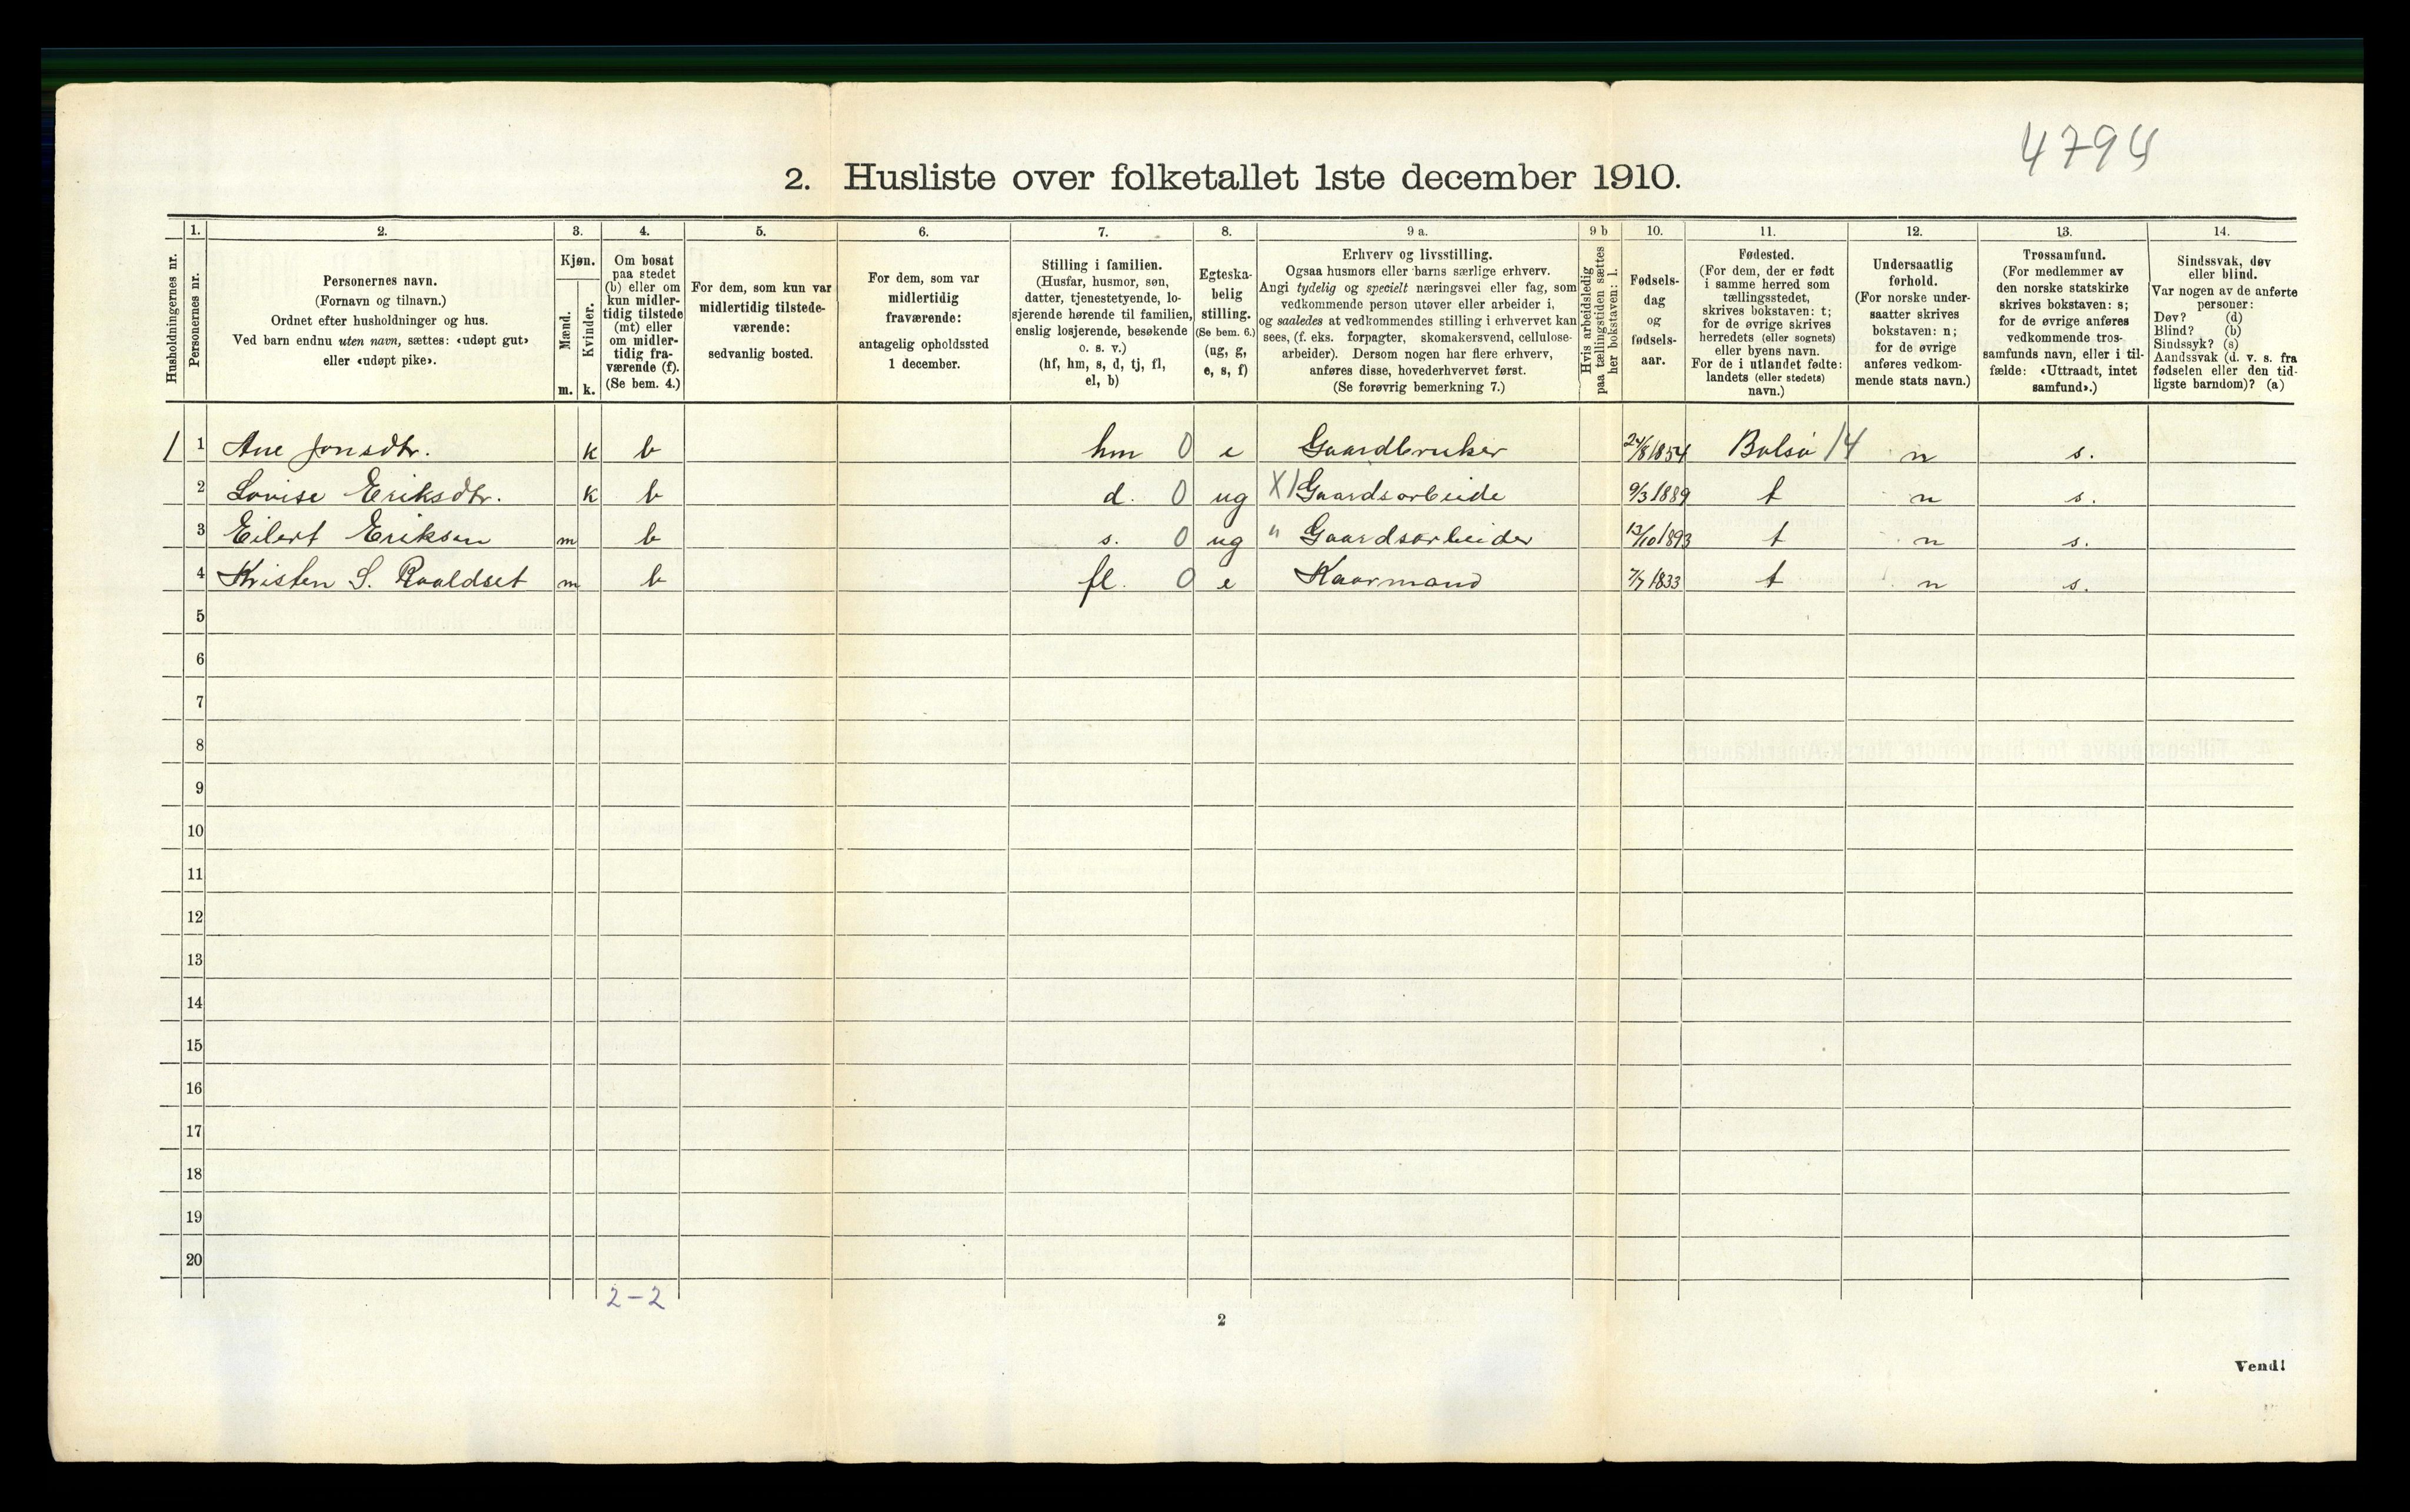 4794
2. Husliste over folketallet 1ste december 1910.
Husholdningernes nr.
1.
Personernes nr.
2.
Personernes navn.
(Fornavn og tilnavn.)
Ordnet efter husholdninger og hus.
Ved barn endnu uten navn, sættes: «udøpt gut»
eller «udøpt pike».
3.
Kjøn.
Mænd.
m.
Kvinder.
k.
4.
Om bosat
paa stedet
(b) eller om
kun midler-
tidig tilstede
(mt) eller
om midler-
tidig fra-
værende (f).
(Se bem. 4.)
5.
For dem, som kun var
midlertidig tilstede-
værende:
sedvanlig bosted.
6.
For dem, som var
midlertidig
fraværende:
antagelig opholdssted
1 december.
7.
Stilling i familien.
(Husfar, husmor, søn,
datter, tjenestetyende, lo-
sjerende hørende til familien,
enslig losjerende, besøkende
o. s. v.)
(hf, hm, s, d, tj, fl,
el, b)
8.
Egteska-
belig
stilling.
(Se bem. 6.)
(ug, g,
e, s, f)
9 a.
Erhverv og livsstilling.
Ogsaa husmors eller barns særlige erhverv.
Angi tydelig og specielt næringsvei eller fag, som
vedkommende person utøver eller arbeider i,
og saaledes at vedkommendes stilling i erhvervet kan
sees, (f. eks. forpagter, skomakersvend, cellulose-
arbeider). Dersom nogen har flere erhverv,
anføres disse, hovederhvervet først.
(Se forøvrig bemerkning 7.)
9 b
Hvis arbeidsledig
paa tællingstiden sættes
her bokstaven: l.
10.
Fødsels-
dag
og
fødsels-
aar.
11.
Fødested.
(For dem, der er født
i samme herred som
tællingsstedet,
skrives bokstaven: t;
for de øvrige skrives
herredets (eller sognets)
eller byens navn.
For de i utlandet fødte:
landets (eller stedets)
navn.)
12.
Undersaatlig
forhold.
(For norske under-
saatter skrives
bokstaven: n;
for de øvrige
anføres vedkom-
mende stats navn.)
13.
Trossamfund.
(For medlemmer av
den norske statskirke
skrives bokstaven: s;
for de øvrige anføres
vedkommende tros-
samfunds navn, eller i til-
fælde: «Uttraadt, intet
samfund».)
14.
Sindssvak, døv
eller blind.
Var nogen av de anførte
personer:
Døv? (d)
Blind? (b)
Sindssyk? (s)
Aandssvak (d. v. s. fra
fødselen eller den tid-
ligste barndom)? (a)
1 1 Ane Jonsdtr. k b hm 0 e Gaardbruker 24/8 1854 Bolsø 14 n s.
2 Lovise Eriksdtr. k b d. 0 ug X1 Gaardsarbeide 9/3 1889 t n s.
3 Eilert Eriksen m b s. 0 ug " Gaardsarbeider 13/10 1893 t n s.
4 Kristen S. Roaldset m b fl. 0 e Kaarmand 7/7 1833 t n s.
5
6
7
8
9
10
11
12
13
14
15
16
17
18
19
20
2-2
2
Vend!